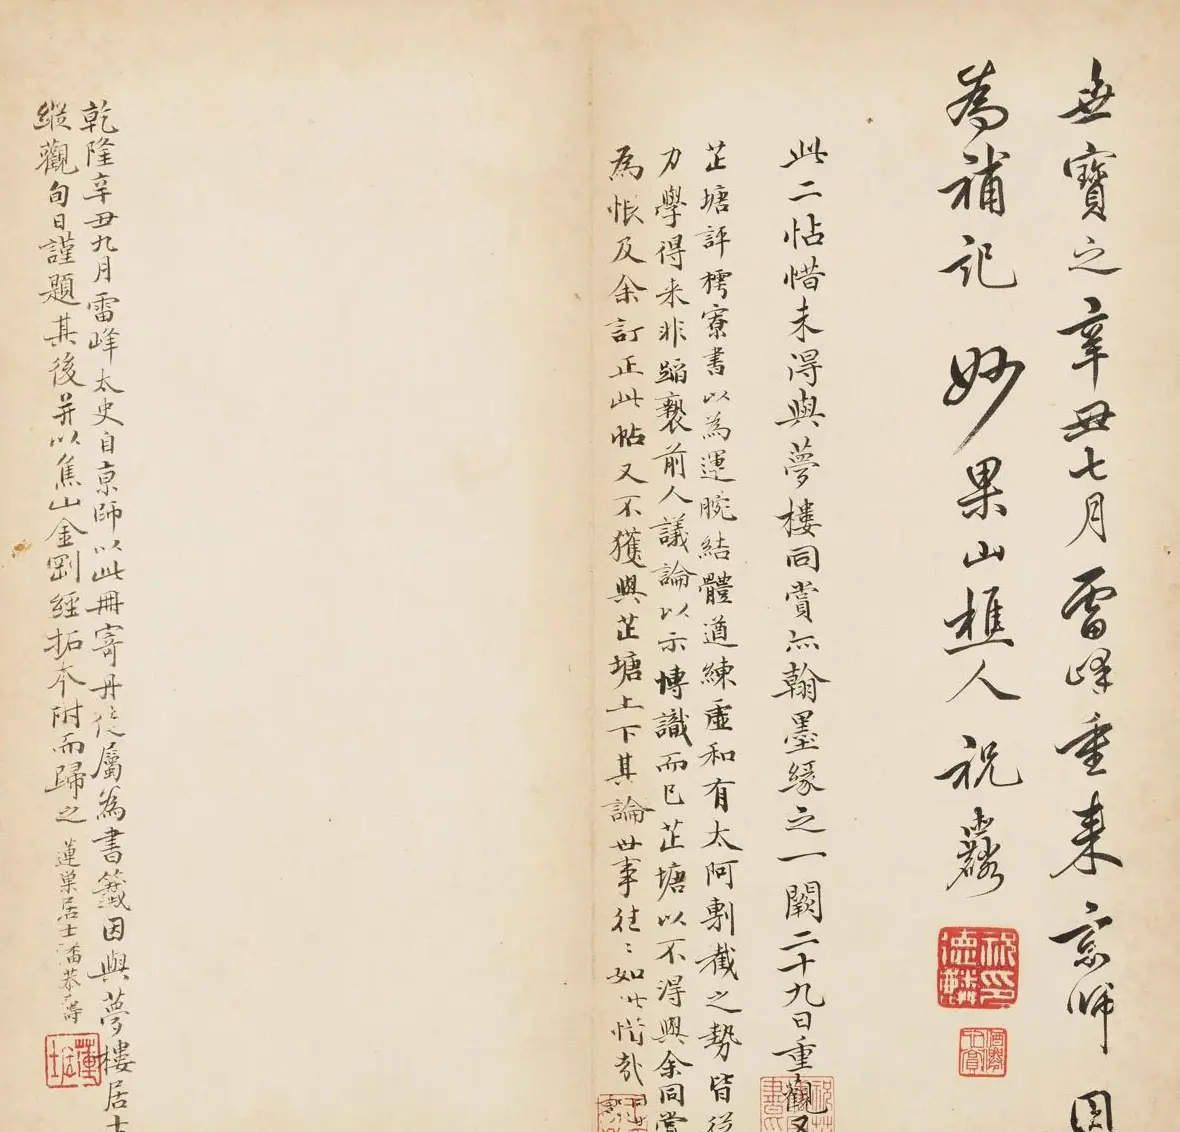 無寶之辛丑七月雷峰重來京師因
為補記 妙果山樵人祝德麟
此二帖惜未得與夢樓同賞亦翰墨緣之一闕二十九日重觀又
芷塘評樗寮書以為運腕結體遒練虛和有太阿剸截之勢皆從
力學得來非蹈襲前人議論以示博識而已芷塘以不得與余同賞
為恨及余訂正此帖又不獲與芷塘上下其論世事往々如此惜哉
乾隆辛丑九月雷峰太史自京師以此冊寄丹徒屬為書籤因與夢樓居士
縱觀旬日謹題其後并以焦山金剛經拓本附而歸之 蓮巢居士潘恭壽